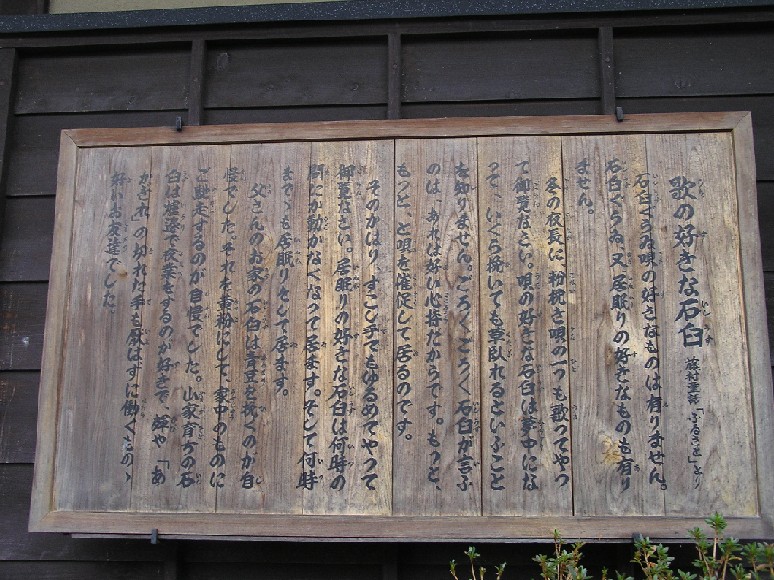 歌の好きな石臼 藤村童話「ふるさと」より
石臼ぐらゐ唄の好きなものは有りません。
石臼ぐらゐ、又、居眠りの好きなものも有り
ません。
冬の夜長に、粉挽き唄の一つも歌ってやっ
て御覧なさい。唄の好きな石臼は夢中にな
って、いくら挽いても草臥れるといふこと
を知りません。ごろごろごろごろ石臼が言ふ
のは、あれは好い心持だからです。もっと、
もっと、と唄を催促して居るのです。
そのかはり、すこし手でもゆるめてやって
御覧なさい。居眠りの好きな石臼は何時の
間にか動かなくなって居ます。そして何時
までゝも居眠りをして居ます。
父さんのお家の石臼は青豆を挽くのが自
慢でした。それを黄粉にして、家中のものに
ご馳走するのが自慢でした。山家育ちの石
臼は爐邊で夜業をするのが好きで、皸や「あ
かぎれ」の切れた手も厭はずに働くものゝ
好いお友達でした。